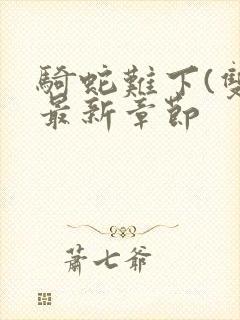 騎蛇難下(雙
最新章節
蕭七爺